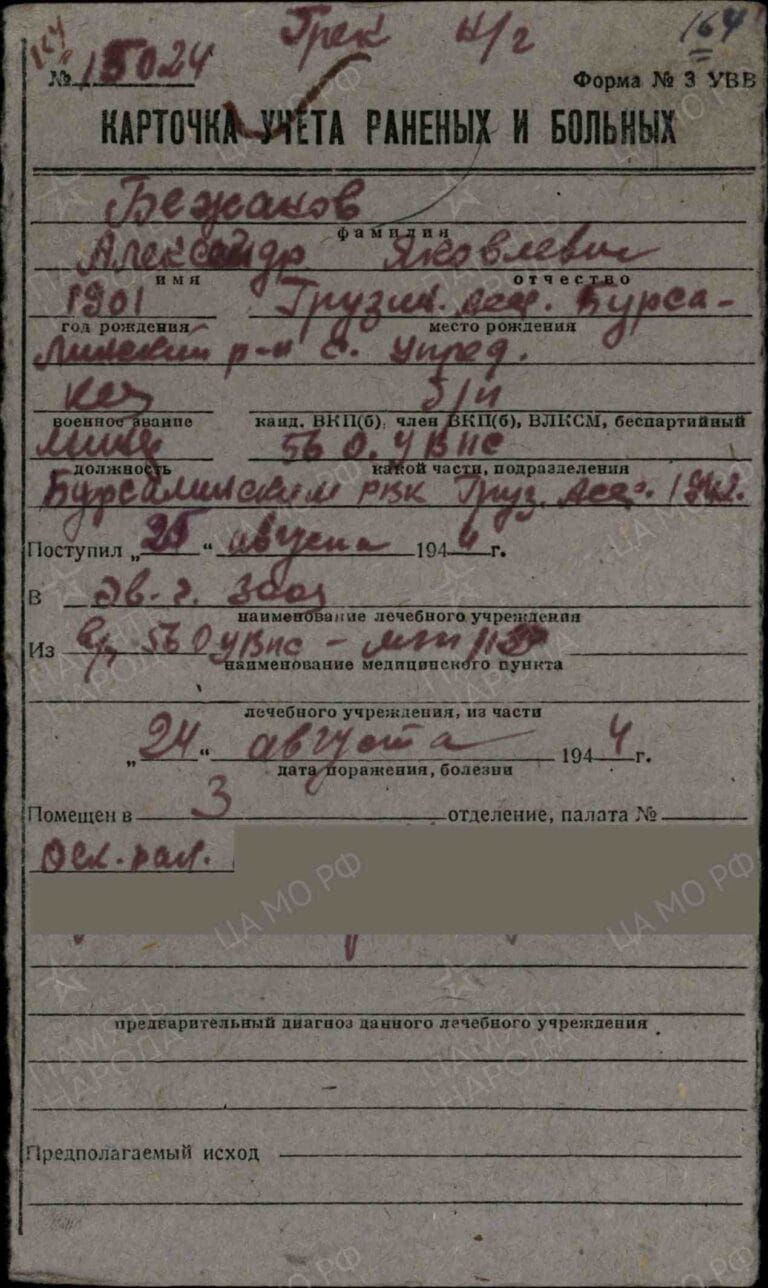 164
Грек н/г
164
№ 15024
Форма № 3 УВВ
КАРТОЧКА УЧЕТА РАНЕНЫХ И БОЛЬНЫХ
Бежанов
фамилия
Александр Яковлевич
имя отчество
1901 Грузин. ССР. Бурса-
год рождения место рождения
линский р-н с. Упред.
б/п
военное звание канд. ВКП(б), член ВКП(б), ВЛКСМ, беспартийный
56 О. УВПС
должность какой части, подразделения
Бурсалинским РВК Груз. ССР. 1942.
Поступил „25“ августа 1944 г.
В эв. г.
наименование лечебного учреждения
Из 56 ОУВПС -
наименование медицинского пункта
лечебного учреждения, из части
„24“ августа 1944 г.
дата поражения, болезни
Помещен в 3 отделение, палата №
Оск. ран.
предварительный диагноз данного лечебного учреждения
Предполагаемый исход
ПАМЯТЬ НАРОДА
ЦА МО РФ